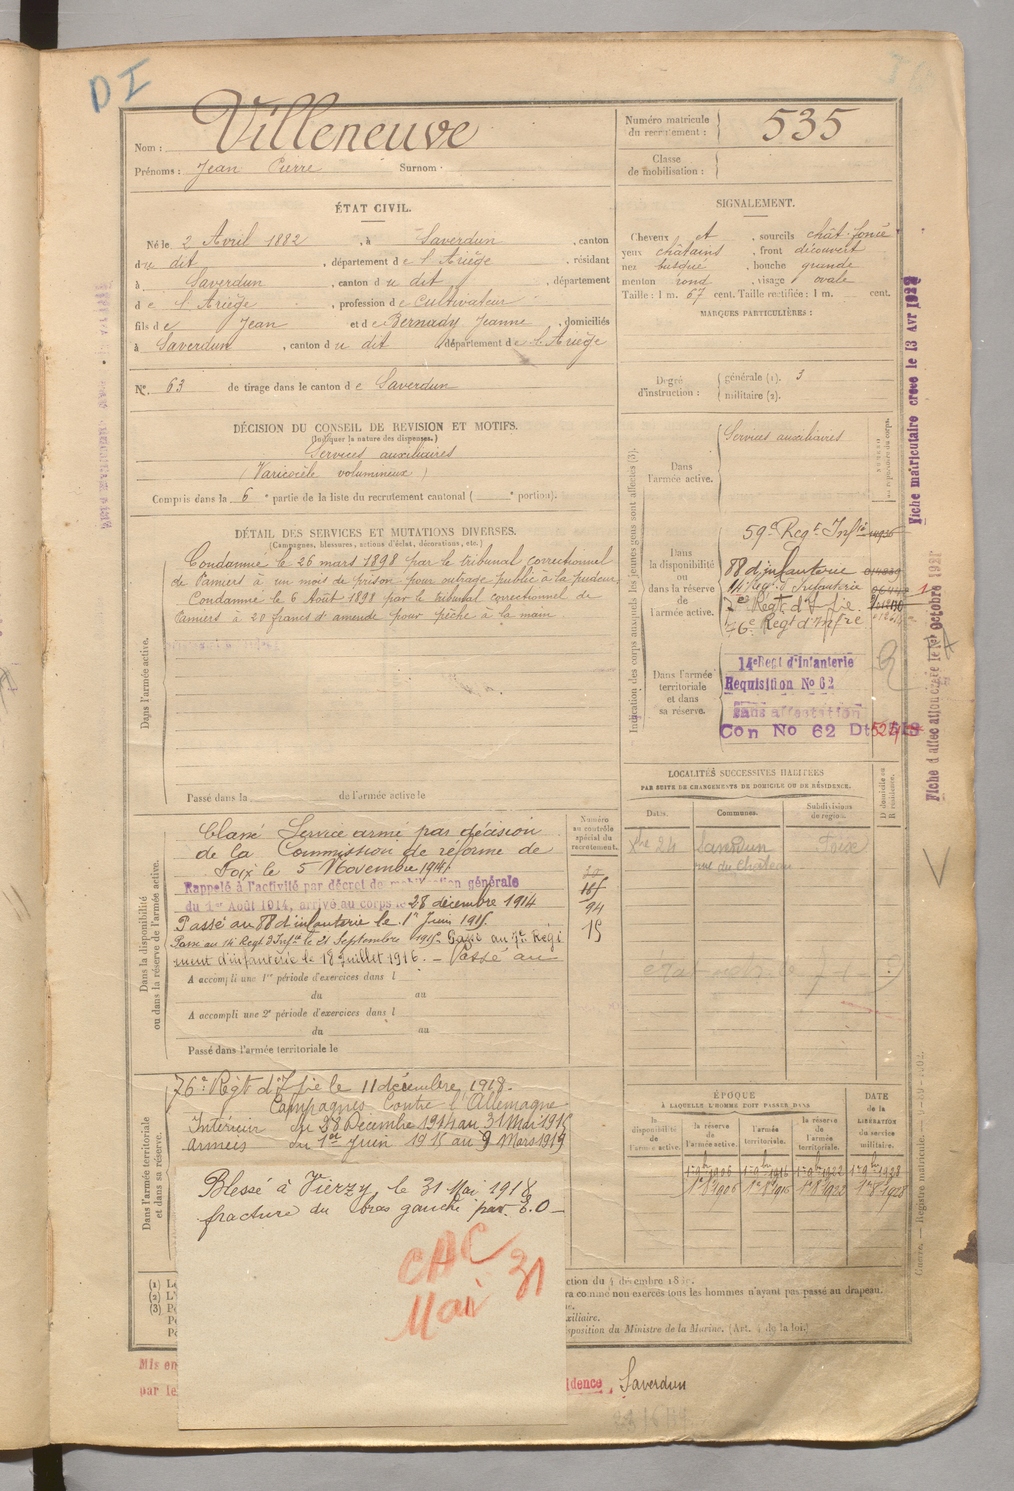 D I
Nom : Villeneuve
Prénoms : Jean Pierre Surnom :
Numéro matricule du recrutement : 535
Classe de mobilisation :
ÉTAT CIVIL.
Né le 2 Avril 1882, à Saverdun, canton
du dit, département de l'Ariège, résidant
à Saverdun, canton du dit, département
de l'Ariège, profession de Cultivateur
fils de Jean et de Bernady Jeanne, domiciliés
à Saverdun, canton du dit département de l'Ariège
N° 63 de tirage dans le canton de Saverdun
DÉCISION DU CONSEIL DE REVISION ET MOTIFS.
(Indiquer la nature des dispenses.)
Services auxiliaires
(Varicocèle volumineux)
Compris dans la 6e partie de la liste du recrutement cantonal ( e portion).
DÉTAIL DES SERVICES ET MUTATIONS DIVERSES.
(Campagnes, blessures, actions d'éclat, décorations, etc.)
Dans l'armée active.
Condamné le 26 mars 1898 par le tribunal correctionnel
de Pamiers à un mois de prison pour outrage public à la pudeur.
Condamné le 6 Août 1898 par le tribunal correctionnel de
Pamiers à 20 francs d'amende pour pêche à la main
Passé dans la de l'armée active le
Dans la disponibilité ou dans la réserve de l'armée active.
Classé Service armé par décision
de la Commission de réforme de
Foix le 5 Novembre 1914
Rappelé à l'activité par décret de mobilisation générale
du 1er Août 1914, arrivé au corps le 28 décembre 1914
Passé au 88 d'infanterie le 1er Juin 1915.
Passé au 14e Régt d'Infie le 21 Septembre 1915. Passé au 7e Régi
ment d'infanterie le 18 juillet 1916. – Passé au
A accompli une 1re période d'exercices dans l
du au
A accompli une 2e période d'exercices dans l
du au
Passé dans l'armée territoriale le
Numéro au contrôle spécial du recrutement.
94
15
Dans l'armée territoriale et dans sa réserve.
76e Régt d'Ifie le 11 décembre 1918.
Campagnes Contre l'Allemagne
Intérieur du 28 Décembre 1914 au 31 Mai 1915
Armées du 1er Juin 1915 au 9 Mars 1919
Blessé à Vierzy, le 31 Mai 1918
fracture du bras gauche par E.O –
CAC
31
Mai
SIGNALEMENT.
Cheveux et, sourcils chât. foncé
yeux châtains, front découvert
nez busqué, bouche grande
menton rond, visage ovale
Taille : 1 m. 67 cent. Taille rectifiée : 1 m. cent.
MARQUES PARTICULIÈRES :
Degré d'instruction : générale (1). 3
militaire (2).
Indication des corps auxquels les jeunes gens sont affectés (3).
Dans l'armée active.
Services auxiliaires
Dans la disponibilité ou dans la réserve de l'armée active.
59e Regt Infie
88 d'infanterie
14e Régt d'Infanterie
7e Regt d'Ifie
76e Regt d'Infre
Dans l'armée territoriale et dans sa réserve.
14e Regt d'infanterie
Requisition No 62
Sans affectation
Con No 62 Dt
Fiche matriculaire créée le 13 Avr 1922
LOCALITÉS SUCCESSIVES HABITÉES
PAR SUITE DE CHANGEMENTS DE DOMICILE OU DE RÉSIDENCE.
Dates. Communes. Subdivisions de région. D. domicile ou R. résidence.
24 Saverdun Foix
rue du Château
ÉPOQUE
À LAQUELLE L'HOMME DOIT PASSER DANS
la disponibilité de l'armée active.
la réserve de l'armée active.
l'armée territoriale.
la réserve de l'armée territoriale.
DATE de la LIBÉRATION du service militaire.
(1)
(2)
(3)
ra comme non exercés tous les hommes n'ayant pas passé au drapeau.
sposition du Ministre de la Marine. (Art. 4 de la loi.)
Mis en
par le
idence, Saverdun